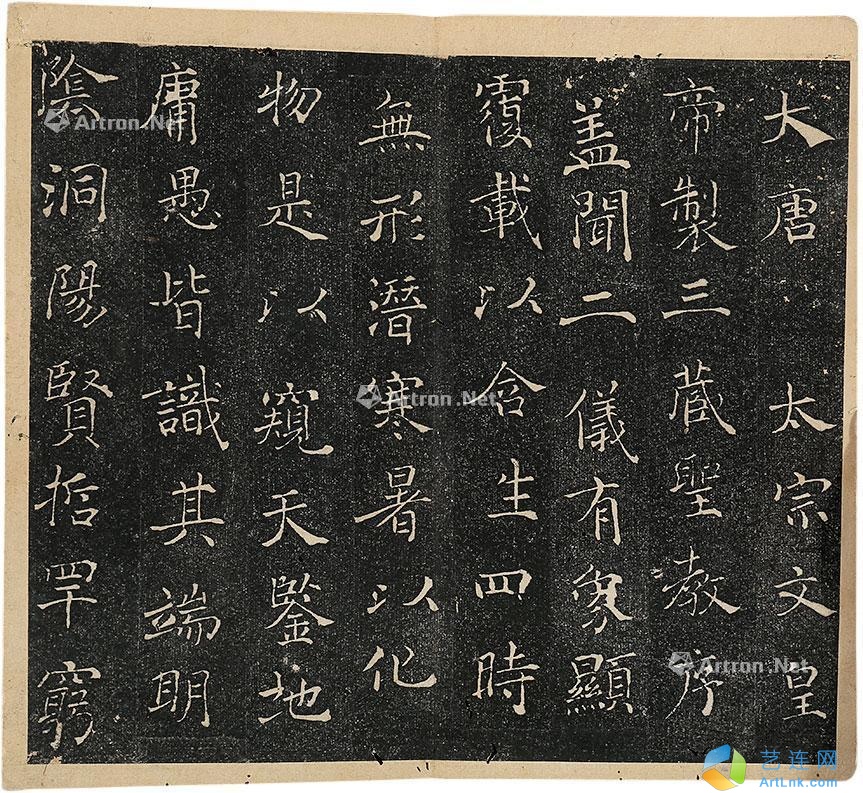 大唐太宗文皇
帝製三藏聖教序
盖聞二儀有象顯
覆載以含生四時
無形潛寒暑以化
物是以窺天鑒地
庸愚皆識其端明
陰洞陽賢哲罕窮
Artron.Net
Artron.Net
Artron.Net
艺连网
ArtLnk.com